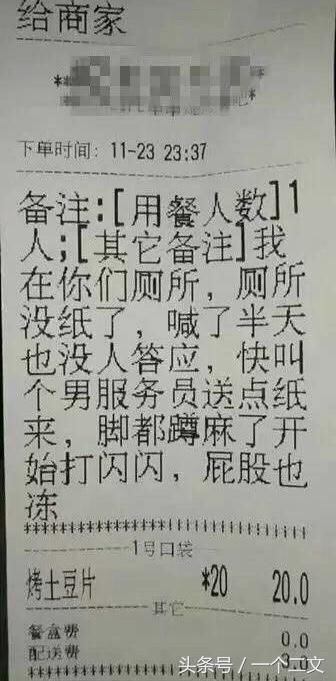 给商家
下单时间: 11-23 23:37
备注:[用餐人数]1
人;[其它备注]我
在你们厕所，厕所
没纸了，喊了半天
也没人答应，快叫
个男服务员送点纸
来，脚都蹲麻了开
始打闪闪，屁股也
冻
1号口袋
烤土豆片 *20 20.0
其它
餐盒费 0.0
配送费
头条号/一个二文